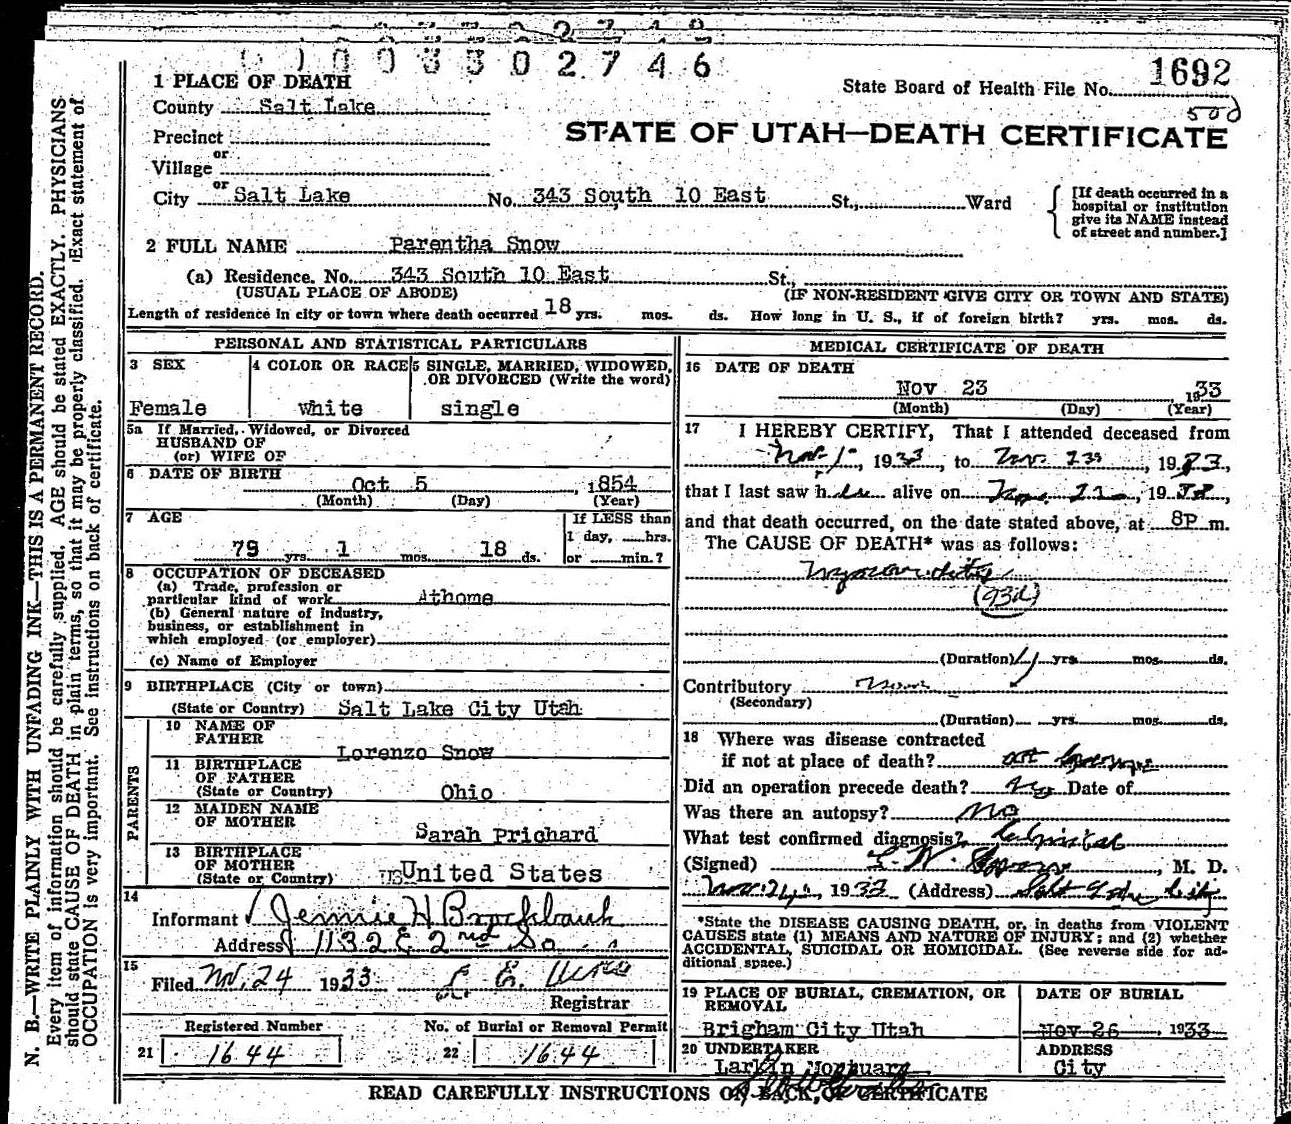 0003302746
1692
State Board of Health File No.
50d
STATE OF UTAH—DEATH CERTIFICATE
1 PLACE OF DEATH
County Salt Lake
Precinct
or
Village
or
City Salt Lake No. 343 South 10 East St., Ward
[If death occurred in a
hospital or institution
give its NAME instead
of street and number.]
2 FULL NAME Parentha Snow
(a) Residence. No. 343 South 10 East St.,
(USUAL PLACE OF ABODE) (IF NON-RESIDENT GIVE CITY OR TOWN AND STATE)
Length of residence in city or town where death occurred 18 yrs. mos. ds. How long in U. S., if of foreign birth? yrs. mos. ds.
PERSONAL AND STATISTICAL PARTICULARS
3 SEX
Female
4 COLOR OR RACE
White
5 SINGLE, MARRIED, WIDOWED,
OR DIVORCED (Write the word)
single
5a If Married, Widowed, or Divorced
HUSBAND OF
(or) WIFE OF
6 DATE OF BIRTH
Oct 5, 1854
(Month) (Day) (Year)
7 AGE
79 yrs. 1 mos. 18 ds.
If LESS than
1 day, ......hrs.
or ......min.?
8 OCCUPATION OF DECEASED
(a) Trade, profession or
particular kind of work Athome
(b) General nature of industry,
business, or establishment in
which employed (or employer)
(c) Name of Employer
9 BIRTHPLACE (City or town)
(State or Country) Salt Lake City Utah
PARENTS
10 NAME OF
FATHER
Lorenzo Snow
11 BIRTHPLACE
OF FATHER
(State or Country) Ohio
12 MAIDEN NAME
OF MOTHER
Sarah Prichard
13 BIRTHPLACE
OF MOTHER
(State or Country) United States
14
Informant Jennie H Brockbank
Address 1132 E 2nd So
15
Filed Nov. 24 1933
Registrar
Registered Number
21 1644
No. of Burial or Removal Permit
22 1644
MEDICAL CERTIFICATE OF DEATH
16 DATE OF DEATH
Nov 23 1933
(Month) (Day) (Year)
17 I HEREBY CERTIFY, That I attended deceased from
Nov. 1, 1933, to Nov. 23, 1933,
that I last saw h alive on 19 ,
and that death occurred, on the date stated above, at 8P m.
The CAUSE OF DEATH* was as follows:
Myocarditis
(93d)
(Duration) yrs. mos. ds.
Contributory None
(Secondary)
(Duration) yrs. mos. ds.
18 Where was disease contracted
if not at place of death?
Did an operation precede death? No Date of
Was there an autopsy? No
What test confirmed diagnosis? Clinical
(Signed) , M. D.
Nov. 24, 1933 (Address) Salt Lake City
*State the DISEASE CAUSING DEATH, or, in deaths from VIOLENT
CAUSES state (1) MEANS AND NATURE OF INJURY; and (2) whether
ACCIDENTAL, SUICIDAL OR HOMICIDAL. (See reverse side for ad-
ditional space.)
19 PLACE OF BURIAL, CREMATION, OR
REMOVAL
Brigham City Utah
DATE OF BURIAL
Nov 26, 1933
20 UNDERTAKER
Larkin Mortuary
ADDRESS
City
READ CAREFULLY INSTRUCTIONS ON BACK OF CERTIFICATE
N. B.—WRITE PLAINLY WITH UNFADING INK—THIS IS A PERMANENT RECORD.
Every item of information should be carefully supplied. AGE should be stated EXACTLY. PHYSICIANS
should state CAUSE OF DEATH in plain terms, so that it may be properly classified. Exact statement of
OCCUPATION is very important. See instructions on back of certificate.